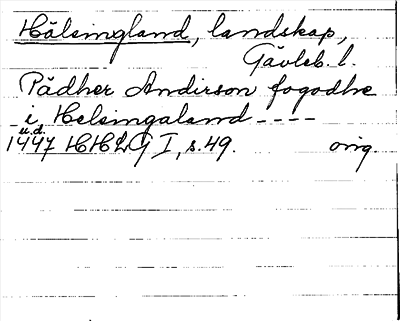 Hälsingland, landskap,
Gävleb. l.
Pädher Andirson fogodhe
i Helsingaland ----
u.d.
1447 HHLG I, s. 49. orig.